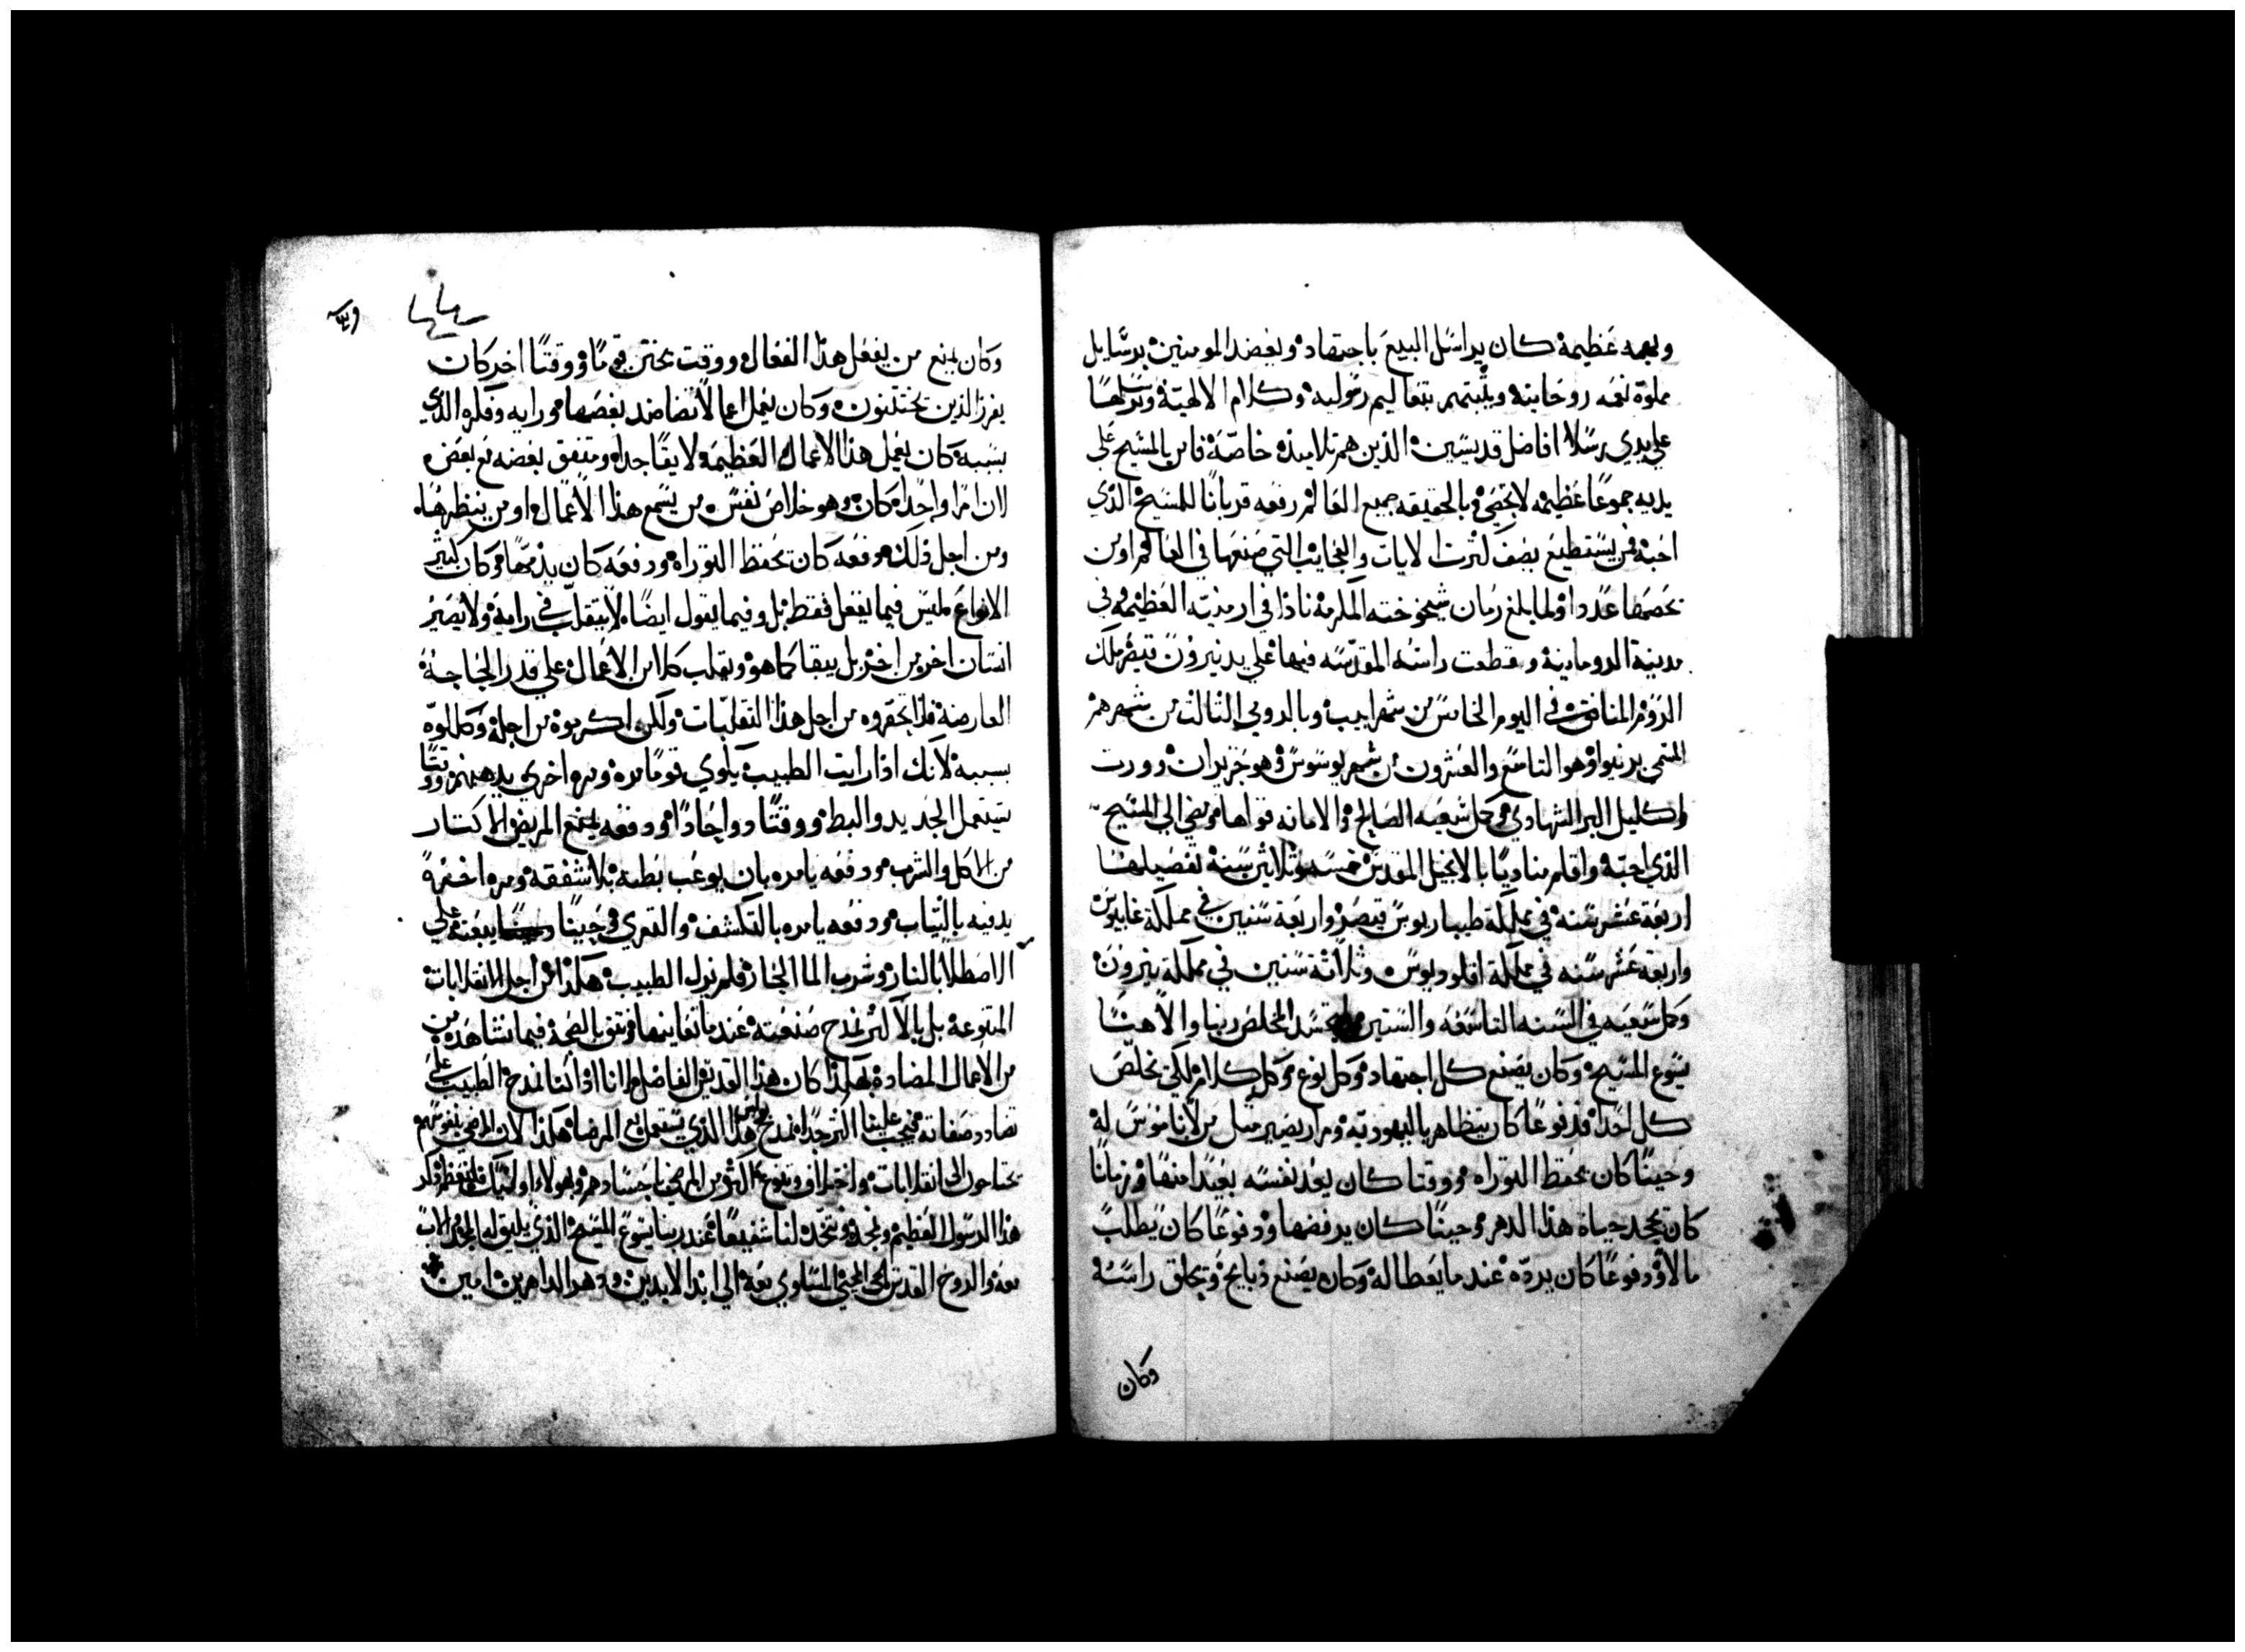 وبهمه عظيمة كان يراسل البيع باجتهاد ويعضد المومنين برسايل
مملوة نعمه روحانية ويثبتهم بتعاليم رسولية وكلام الالهية وترسلها
علي يدي رسلا افاضل قديسين الذين هم تلاميذه خاصة فامن بالمسيح علي
يديه جموعا عظيمه لا تحصي وبالحقيقه جميع العالم رفعه قربانا للمسيح الذي
احبه فمن يستطيع يصف كثرت الايات والعجايب التي صنعها في العالم اومن
يحصيها عددا ولما بلغ زمان شيخوخته المكرمة نادا في ارمنيه العظيمه وفي
مدينة الرومانية وقطعت راسه المقدسه فيها علي يد نيرون قيصر ملك
الروم المنافق في اليوم الخامس من شهر ابيب وبالرومي الثالث من شهرهم
المسمي يونيوا وهو التاسع والعشرون من شهر يوسوس وهو حزيران وورث
واكليل البر الشهادي وكمل سعيه الصالح والامانه قواها ومضي الي المسيح
الذي احبه واقام مناديا بالانجيل المقدس خمسه وثلاثين سنة تفصيلها
اربعة عشر سنه في مملكة طيباريوس قيصر واربعة سنين في مملكة غاييوس
واربعة عشر سنه في مملكة اقلوديوس وثلاثة سنين في مملكة نيرون
وكمل سعيه في السنه التاسعه والستين لتجسد المخلص ربنا والاهنا
يسوع المسيح وكان يصنع كل اجتهاد وكل نوع وكل كلام لكي يخلص
كل احد فدفوعا كان يتظاهر باليهودية ومرار يصير مثل من لا ناموس له
وحينا كان يحفظ التوراه ووقتا كان يعد نفسه بعيدا منها وزمانا
كان يجحد حياة هذا الدهر وحينا كان يرفضها ودفوعا كان يطلب
مالا ودفوعا كان يرده عند ما يعطا له وكان يصنع ذبايح ويحلق راسه
وكان
وكان يمنع من يفعل هذا الفعال ووقت يختن قوما ووقتا اخر كان
يفرز الذين يختتنون وكان يعمل اعمالا تضاضد بعضها ورايه وفكره الذي
بسببه كان يعمل هذا الاعمال العظيمه لايقا جدا ومتفق بعضه مع بعض
لان امرا واحدا كان وهو خلاص نفس من يسمع هذا الاعمال او من ينظرها
ومن اجل ذلك دفعه كان يحفظ التوراه ودفعه كان يذمها وكان كثير
الانواع وليس فيما يفعل فقط بل وفيما يقول ايضا لا يتقلب في راية ولا يصير
انسان اخر من اخر بل يبقا كما هو ويقلب كلا من الاعمال علي قدر الحاجة
العارضة فلا تحقروه من اجل هذا التقلبات ولكن اكرموه من اجلها وكللوه
بسببه لانك اذا رايت الطبيب ياوي قوما مره ومره اخري يدهنهم ووقتا
يستعمل الحديد والبط ووقتا دوا حادا ودفعه يمنع المريض الاكثار
من الاكل والشرب ودفعه يامره بان يوعب بطنه بلا شفقه ومره اخرة
يدفيه بالثياب ودفعه يامره بالتكشف والتعري وحينا يبعثه علي
الاصطلا بالنار وشرب الما الحار فلم نرذل الطبيب هكذا من اجل الانقلابات
المتنوعة بل بالاكثر نمدح صنعته عند ما نعاينها ونثق بالصحة فيما نشاهد من
من الاعمال المضادة فهكذا كان هذا القديس الفاضل وان اذا كنا نمدح الطبيب علي
تضادد صفاته فيجب علينا اكثر جدا نمدح بولس هذا الذي يستعمل مع المرضا هكذا لان المرضي بنفوسهم
يحتاجون الي انقلابات واختلاف وتنوع اكثر من المرضا باجسادهم وهولاء اوليك فلنعظم ذكر
هذا الرسول العظيم ونمجده ونتخذه لنا شفيعا عند ربنا يسوع المسيح الذي يليق له المجد الان
معه والروح القدس المحيي المساوي معه الي ابد الابدين ودهر الداهرين امين